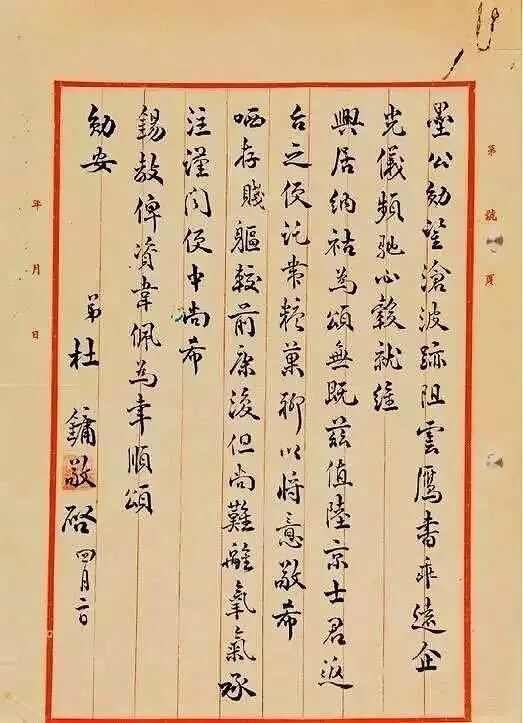 第 號 頁
墨公勛鑒滄波跡阻雲鴈書乖遠企
光儀頻馳心轂就維
興居納祜為頌無既茲值陸京士君返
台之便託帶糖菓聊以將意敬希
哂存賤軀較前康復但尚難離氧氣承
注謹聞便中尚希
錫教俾資韋佩為幸順頌
勛安
弟 杜 鏞 敬 啓 四月二日
年 月 日